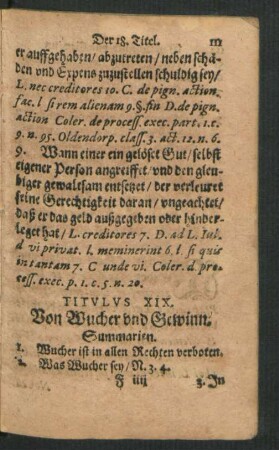 Der 18. Titel. 111
er auffgehaben/ abzutreten/ neben schä-
den vnd Expens zuzustellen schuldig sey/
L. nec creditores 10. C. de pign. action.
fac. l si rem alienam 9. §. fin D. de pign.
action Coler. de process. exec. part. 1. c.
9. n. 95. Oldendorp. class. 3. act. 12. n. 6.
9. Wann einer ein gelöset Gut/ selbst
eigener Person angreiffet/ vnd den gleu-
biger gewaltsam entsetzet/ der verleuret
seine Gerechtigkeit daran/ vngeachtet/
daß er das geld außgegeben oder hinder-
leget hat/ L. creditores 7. D. ad L. Iul.
d vi privat. l. meminerint 6. l. si quis
in tantam 7. C unde vi. Coler. d. pro-
cess. exec. p. 1. c. 5. n. 20.
TITVLVS XIX.
Von Wucher vnd Gewinn.
Summarien.
1. Wucher ist in allen Rechten verboten.
2. Was Wucher sey/ N. 3. 4.
F iiij 3. In